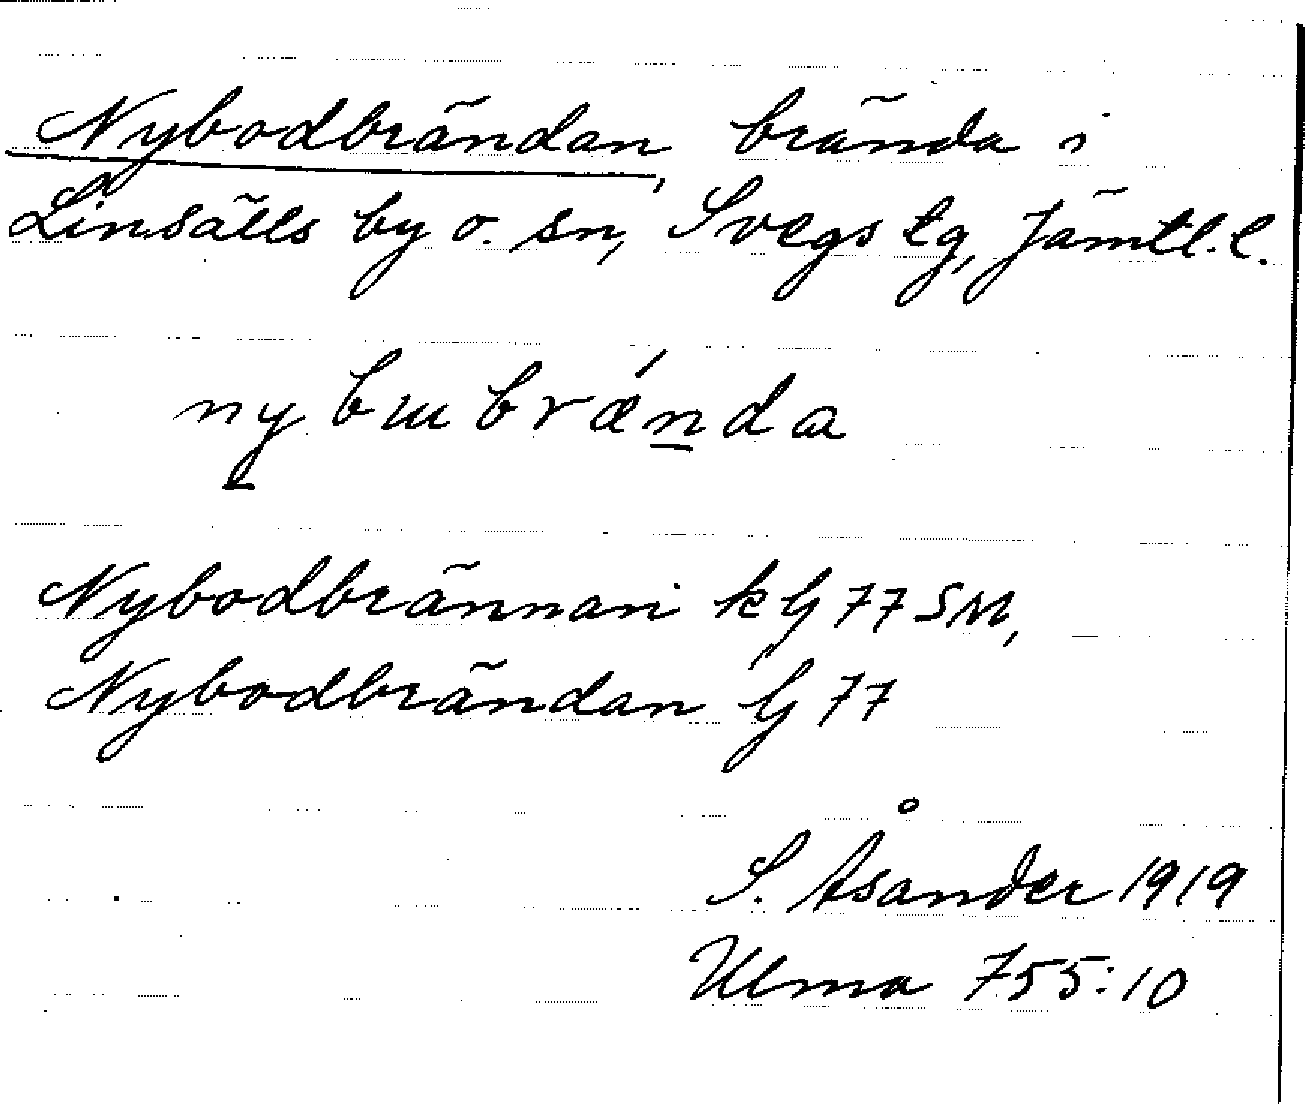 Nybodbrändan, brända i
Linsälls by o. sn, Svegs tg, Jämtl. l.
nybɯbrǽnda
Nybodbrännan k G 77 SM,
Nybodbrändan G 77
S. Åsander 1919
Ulma 755:10